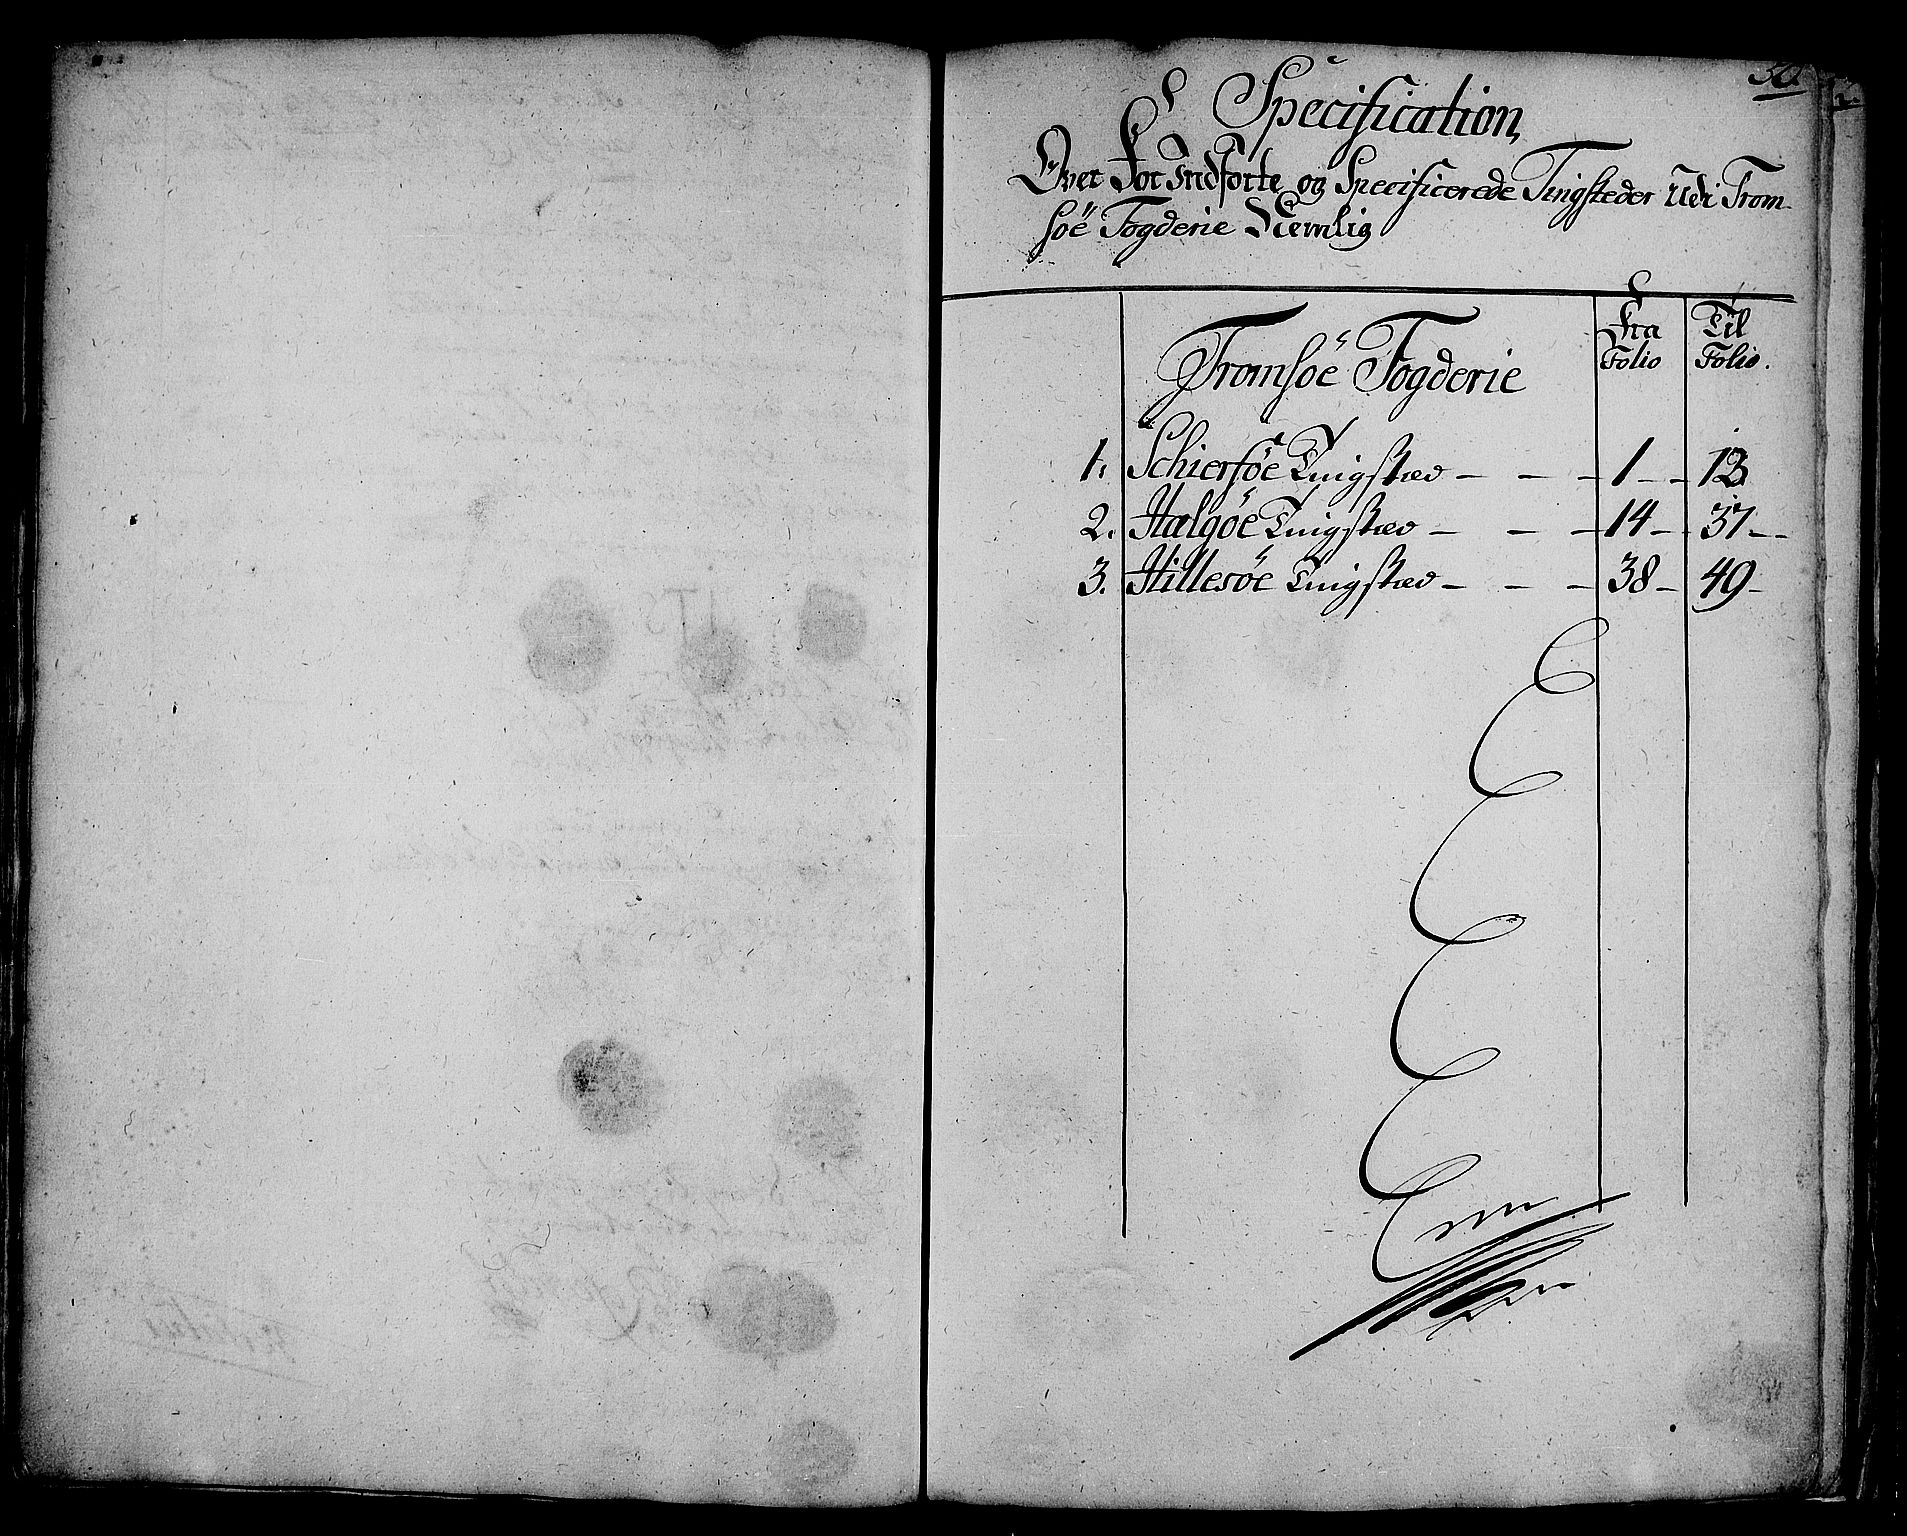 Specification,
Over For Indførte og Specificerede Tingsteder Udi Trom-
søe Fogderie Nemlig
Tromsøe Fogderie
Fra Folio
Til Folio.
1. Schiersøe Tingstæd - - - 1 - - 13
2. Hælgøe Tingstæd - - - 14 - 37 -
3. Hillesøe Tingstæd - - - 38 - 49 -